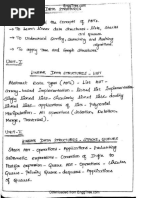 EnggTree.com
DATA STRUCTURES
the concept of ADTs.
→ To learn linear data structures - lists, stacks and queues
→ To understand sorting, searching and hashing algorithms
→ To apply Tree and Graph structures
UNIT - I
LINEAR DATA STRUCTURES - LIST
Abstract Data Types (ADTs) - List ADT -
array-based implementation - linked list implementation
singly linked lists - circularly linked lists - doubly
linked lists - applications of lists - Polynomial
Manipulation - All operations (Insertion, Deletion,
Merge, Traversal).
UNIT - II
LINEAR DATA STRUCTURES - STACKS, QUEUES
Stack ADT - Operations - Applications - Evaluating
arithmetic expressions - Conversion of Infix to
Postfix expression - Queue ADT - Operations - Circular
Queue - Priority Queue - deQueue - Applications
of queues.
Downloaded from EnggTree.com